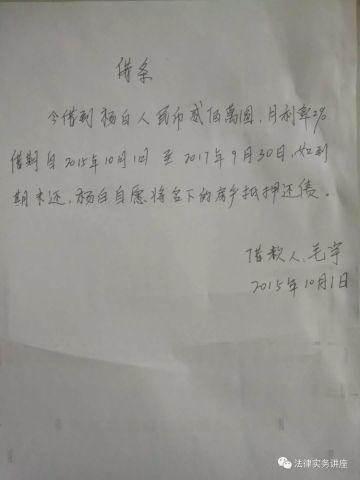 借条
今借到杨白人民币贰佰萬圆，月利率2%
借期自2015年10月1日至2017年9月30日，如到
期未还，杨白自愿将名下的房产抵押还债。
借款人：毛宇
2015年10月1日
法律实务讲座